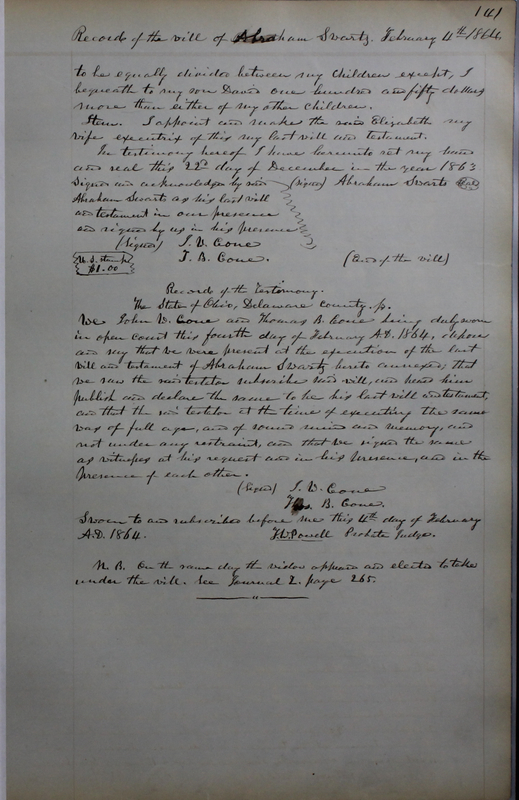 141
Record of the will of Abraham Swartz. February 4th 1864.
to be equally divided between my children except, I
bequeath to my son David one hundred and fifty dollars
more than either of my other children.
Item. I appoint and make the said Elizabeth my
wife executrix of this my last will and testament.
In testimony hereof I have hereunto set my hand
and seal this 22d day of December in the year 1863
Signed and acknowledged by said (signed) Abraham Swartz Seal
Abraham Swartz as his last will
and testament in our presence
and signed by us in his presence
(Signed) J. W. Cone
T. B. Cone. (End of the will)
U.S. stamp
$1.00
Record of the Testimony.
The State of Ohio, Delaware County, ss.
We John W. Cone and Thomas B. Cone being duly sworn
in open court this fourth day of February A.D. 1864, depose
and say that we were present at the execution of the last
will and testament of Abraham Swartz hereto annexed; that
we saw the said testator subscribe said will, and heard him
publish and declare the same to be his last will and testament,
and that the said testator at the time of executing the same
was of full age, and of sound mind and memory, and
not under any restraint, and that we signed the same
as witnesses at his request and in his presence, and in the
presence of each other.
(Signed) J. W. Cone
Thos. B. Cone.
Sworn to and subscribed before me this 4th day of February
A.D. 1864. T.W. Powell Probate Judge.
N. B. On the same day the widow appeared and elected to take
under the will. See Journal 2. page 265.